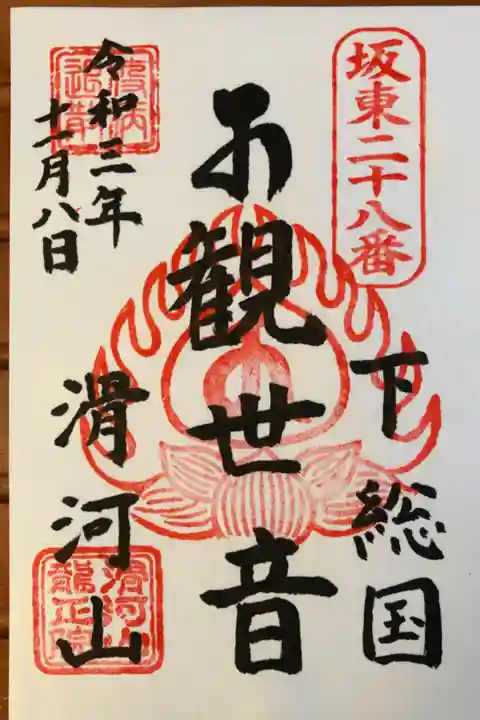 坂東二十八番
下総国
観世音
疫病
退散
令和三年
十一月八日
滑河山
滑河山
龍正院